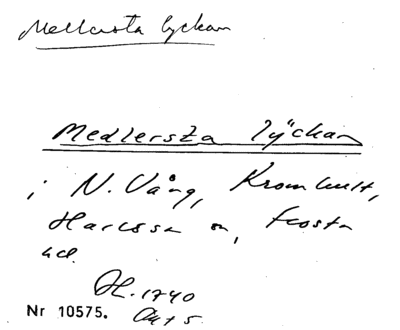 Mellersta lyckan
Medlersta lÿckan
i N. Vång, Kromhult,
Harlösa sn, Frosta
hd.
H. 1740
Nr 10575. Akt 5.